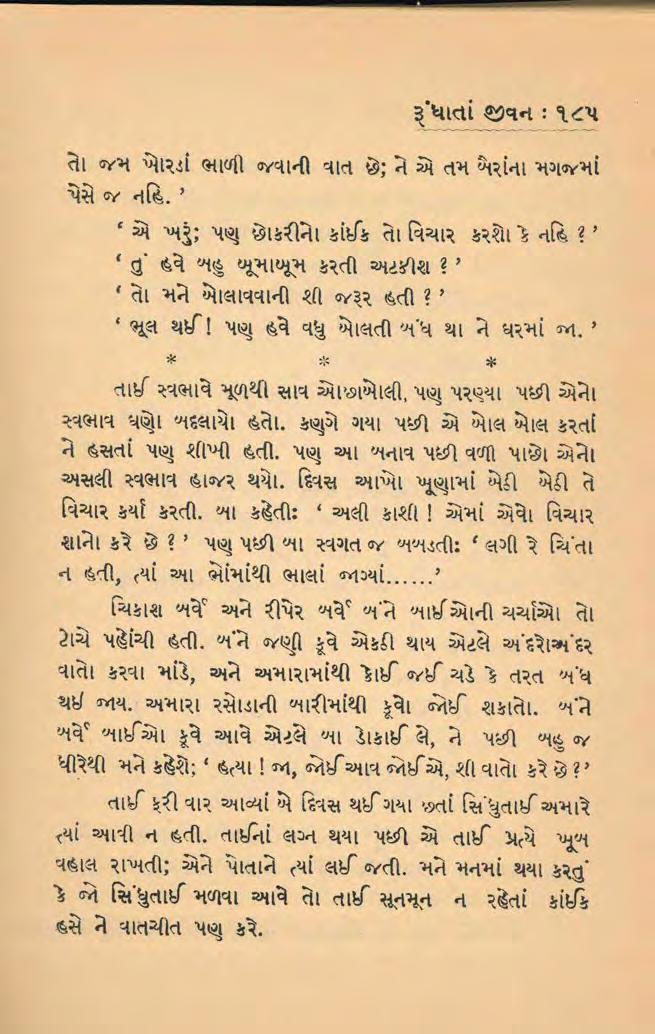 રૂંધાતાં જીવન : ૧૮૫
તો જમ ખોરડાં ભાળી જવાની વાત છે; ને એ તમ બૈરાંના મગજમાં
પેસે જ નહિ. ’
‘ એ ખરું; પણ છોકરીનો કાંઈક તો વિચાર કરશો કે નહિ ? ’
‘ તું હવે બહુ બૂમાબૂમ કરતી અટકીશ ? ’
‘ તો મને બોલાવવાની શી જરૂર હતી ? ’
‘ ભૂલ થઈ ! પણ હવે વધુ બોલતી બંધ થા ને ઘરમાં જા. ’
* * *
તાઈ સ્વભાવે મૂળથી સાવ ઓછાબોલી, પણ પરણ્યા પછી એનો
સ્વભાવ ઘણો બદલાયો હતો. કણગે ગયા પછી એ બોલ બોલ કરતાં
ને હસતાં પણ શીખી હતી. પણ આ બનાવ પછી વળી પાછો એનો
અસલી સ્વભાવ હાજર થયો. દિવસ આખો ખૂણામાં બેઠી બેઠી તે
વિચાર કર્યા કરતી. બા કહેતી: ‘ અલી કાશી ! એમાં એવો વિચાર
શાનો કરે છે ? ’ પણ પછી બા સ્વગત જ બબડતી: ‘ લગી રે ચિંતા
ન હતી, ત્યાં આ ભોંમાંથી ભાલાં જાગ્યાં...... ’
ચિકાશ બર્વે અને રીપેર બર્વે બંને બાઈઓની ચર્ચાઓ તો
ટોચે પહોંચી હતી. બંને જણી કૂવે એકઠી થાય એટલે અંદરોઅંદર
વાતો કરવા માંડે, અને અમારામાંથી કોઈ જઈ ચડે કે તરત બંધ
થઈ જાય. અમારા રસોડાની બારીમાંથી કૂવો જોઈ શકાતો. બંને
બર્વે બાઈઓ કૂવે આવે એટલે બા ડોકાઈ લે, ને પછી બહુ જ
ધીરેથી મને કહેશે; ‘ હત્યા ! જા, જોઈ આવ જોઈએ, શી વાતો કરે છે ? ’
તાઈ ફરી વાર આવ્યાં બે દિવસ થઈ ગયા છતાં સિંધુતાઈ અમારે
ત્યાં આવી ન હતી. તાઈનાં લગ્ન થયા પછી એ તાઈ પ્રત્યે ખૂબ
વહાલ રાખતી; એને પોતાને ત્યાં લઈ જતી. મને મનમાં થયા કરતું
કે જો સિંધુતાઈ મળવા આવે તો તાઈ સૂનમૂન ન રહેતાં કાંઈક
હસે ને વાતચીત પણ કરે.